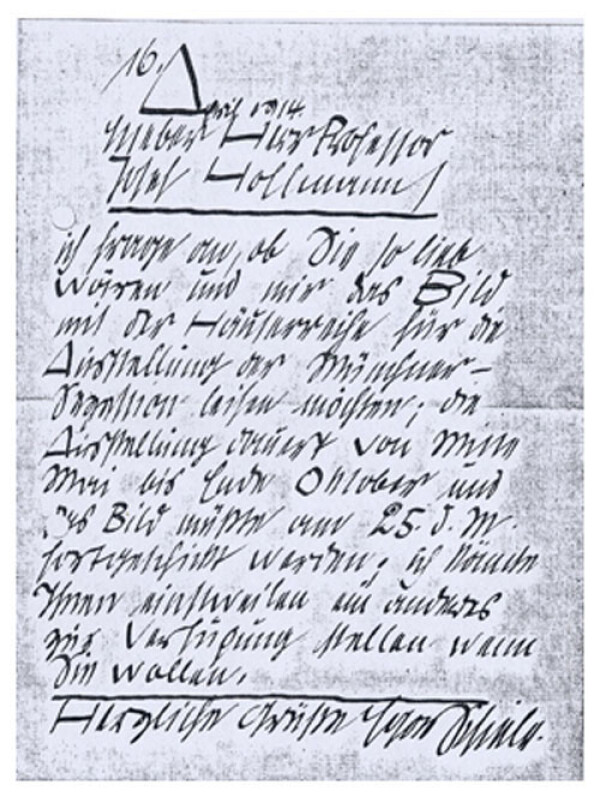 16. April 1914.
Lieber Herr Professor
Josef Hoffmann!
ich frage an, ob Sie so lieb
wären und mir das Bild
mit der Häuserreihe für die
Ausstellung der Münchner-
Sezession leihen möchten; die
Ausstellung dauert von Mitte
Mai bis Ende Oktober und
das Bild müßte am 25. d. M.
fortgeschickt werden; ich könnte
Ihnen einstweilen ein anderes
zur Verfügung stellen wenn
Sie wollen.
Herzliche Grüße Egon Schiele.